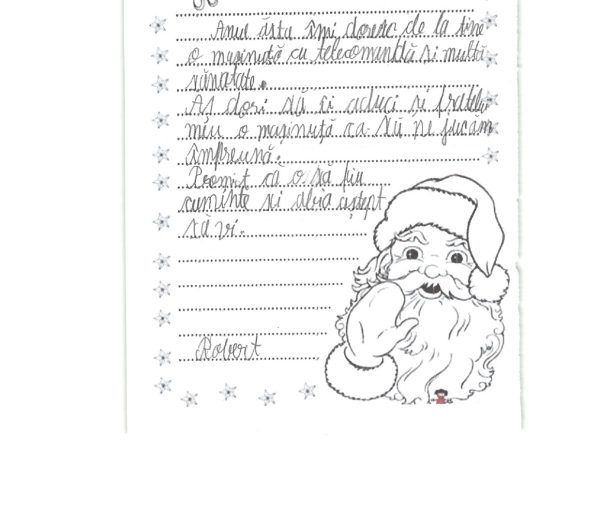 Anul ăsta îmi doresc de la tine
o mașinuță cu telecomindă și multă
sănatate.
Aș dori să îi aduci și fratelui
meu o mașinuță ca să ne jucăm
împreună.
Promit că o să fiu
cuminte și abia aștept
să vi.
Robert